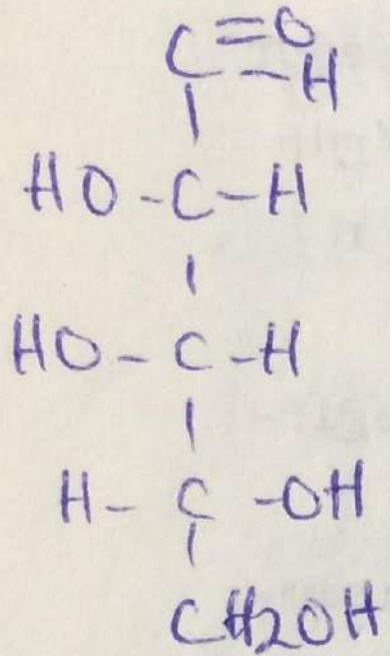 C=O
-H
HO-C-H
HO-C-H
H-C-OH
CH2OH